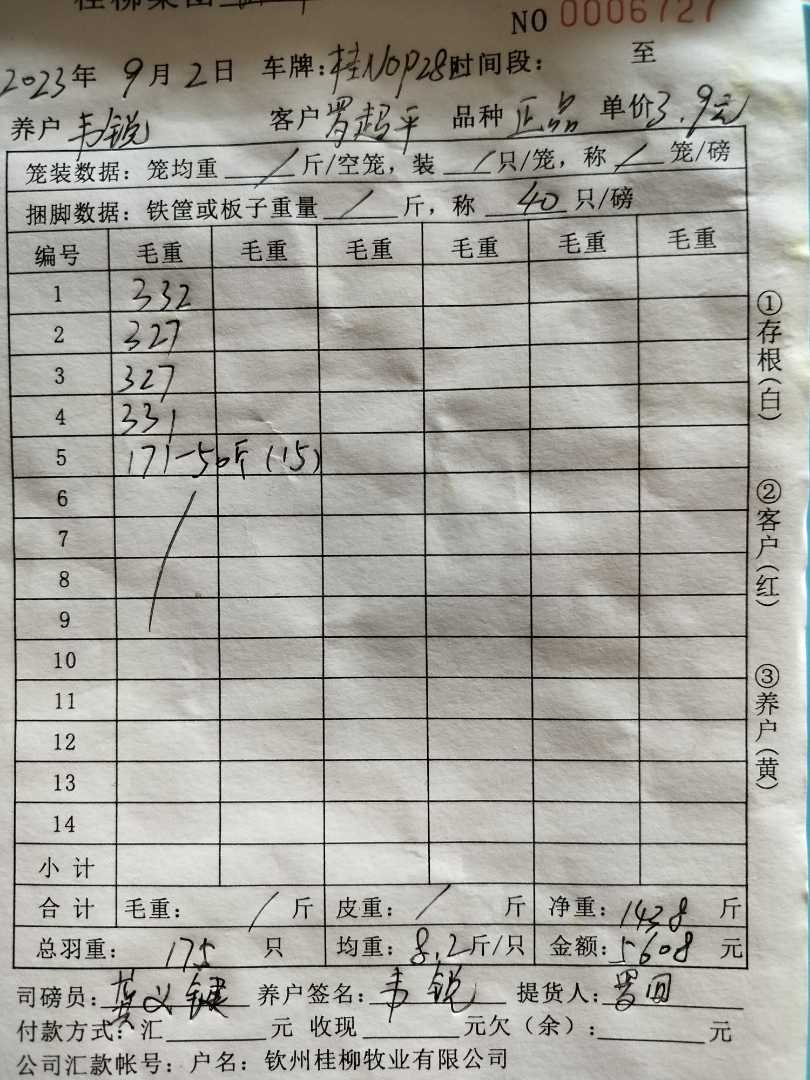 NO 0006727
2023年 9月2日 车牌:桂N0P28 时间段: 至
养户 韦锐 客户 罗超平 品种 正品 单价3.9元
笼装数据: 笼均重 / 斤/空笼, 装 / 只/笼, 称 / 笼/磅
捆脚数据: 铁筐或板子重量 / 斤, 称 40 只/磅
编号 毛重 毛重 毛重 毛重 毛重 毛重
1 332
2 327
3 327
4 331
5 171-50斤(15)
6
7
8
9
10
11
12
13
14
小 计
合 计 毛重: / 斤 皮重: / 斤 净重: 1438 斤
总羽重: 175 只 均重: 8.2斤/只 金额: 5608 元
司磅员: 养户签名: 韦锐 提货人: 罗
付款方式: 汇 元 收现 元欠(余): 元
公司汇款帐号: 户名: 钦州桂柳牧业有限公司
①存根(白)
②客户(红)
③养户(黄)